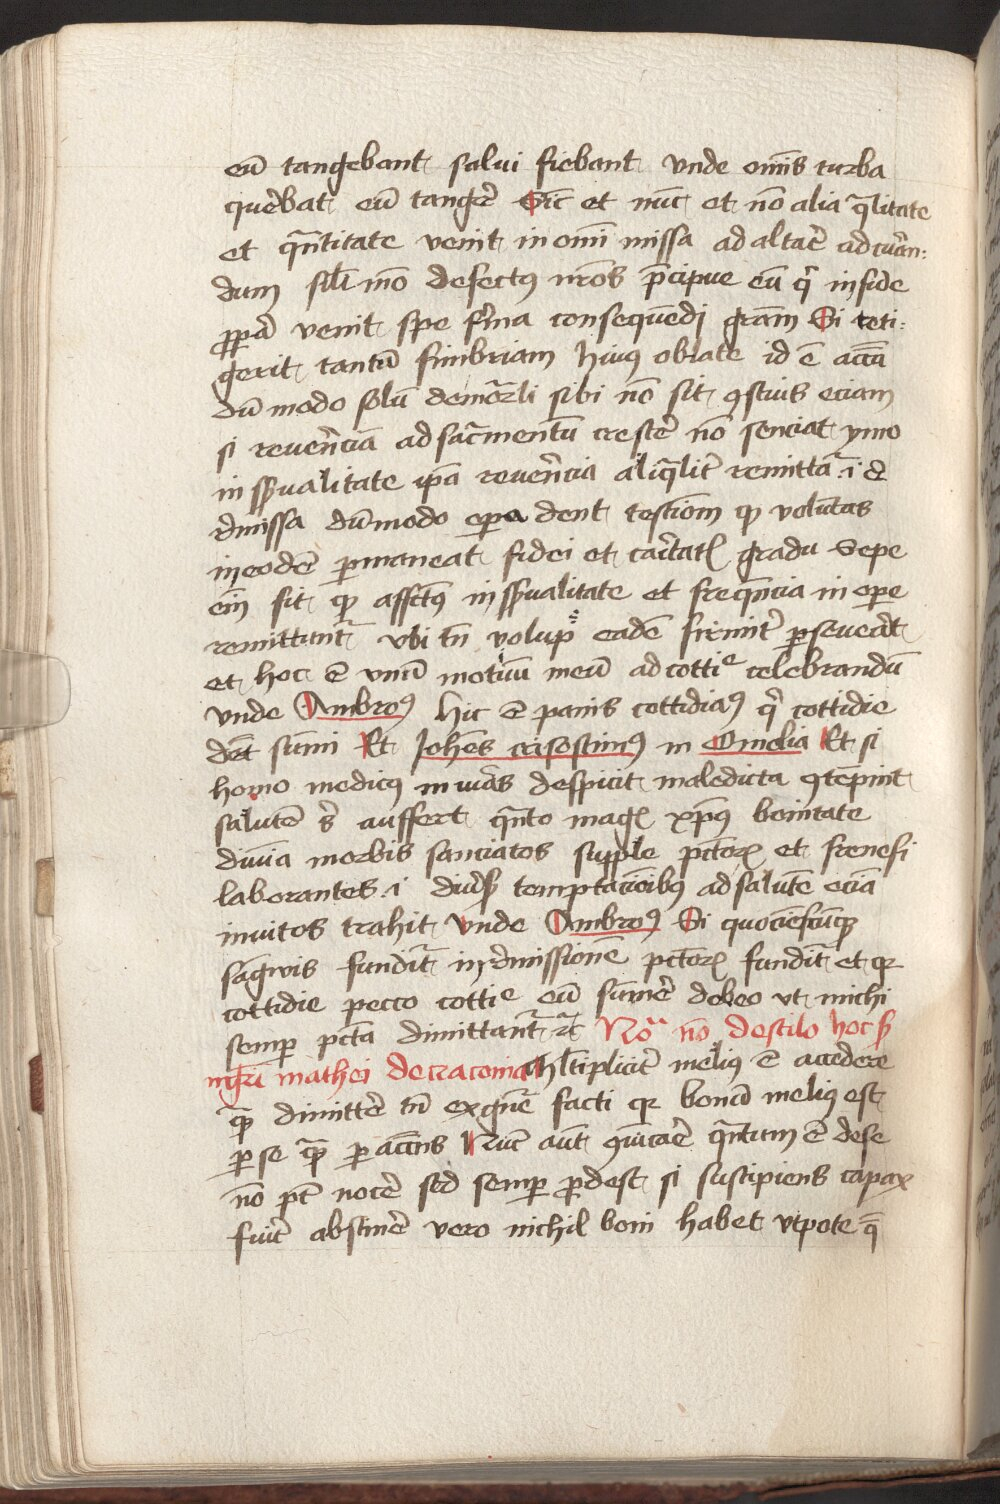 eū tangebant salui fiebant Vnde om̄is turba
querebat eū tangeꝛ̄ Sic̄ et nūc et nō alia q̄litate
et q̄ntitate venit in om̄i missa ad altar̄ ad curan:
dum sil̄i mō defectꝰ nr̄os p̄cipue eū qͥ in fide
ꝓp̄a venit spe firma consequēdj gr̄am Si teti:
gerit tantū fimbriam huiꝰ oblate id ē accn̄
dū modo solū de mōrli sibi nō sit ꝯscius eciam
si reuer̄ncia ad sac̄mentū cresceꝛ̄ nō senciat ymo
in sp̄ualitate ip̄a reuer̄ncia aliq̄liter̄ remittat̄ .i.
dmissa dūmodo opera dent testiōm ꝙ voluntas
in eodē permaneat fidei et caritatꝭ gradu Sepe
eim̄ fit ꝙ affectꝰ in sp̄ualitate et freq̄ncia in opere
remittuntur̄ vbi tn̄ volup̄ eadē firmiter̄ perseuerat
et hoc ē vnicū motiuū meū ad cottie celebrandū
vnde Ambroꝰ Hic ē panis cottidiaꝰ qͥ cottidie
det̄ sumi Et Johēs crisostimꝰ in Omelia Et si
homo medicꝰ in iurias despicit maledicta ꝯtēpnit
salutē sꝫ auffert q̄nto magꝭ xp̄ꝰ bonitate
diuīa morbis sanciatos supple pc̄torꝝ et frenesi
laborantes .i. diuersꝭ temptacioībꝰ ad salutē eciā
inuitos trahit Vnde Ambroꝰ Si quociēscūqꝫ
sāgwis fundit̄ in dmissionē pc̄torꝝ fundit̄ et qꝛ
cottidie pecco cottie eū sumer̄e debeo vt michi
semꝑ pc̄ta dimittant̄ ꝛc̄ Noͣ nō de stilo hoc sꝫ
mgr̄i mathei de cracouia Ml̄tipliciter̄ meliꝰ ē accedere
qͣꝫ dimitter̄e tn̄ ex gn̄e facti qꝛ bonū meliꝰ est
per se qͣꝫ ꝑ accn̄s Nūc aūt ꝯīcaꝛ̄e q̄ntum ē de se
nō pt̄ nocer̄e sed semꝑ ꝓdest si suscipiens capax
fuit̄ abstiner̄e vero nichil boni habet vtpote q̄